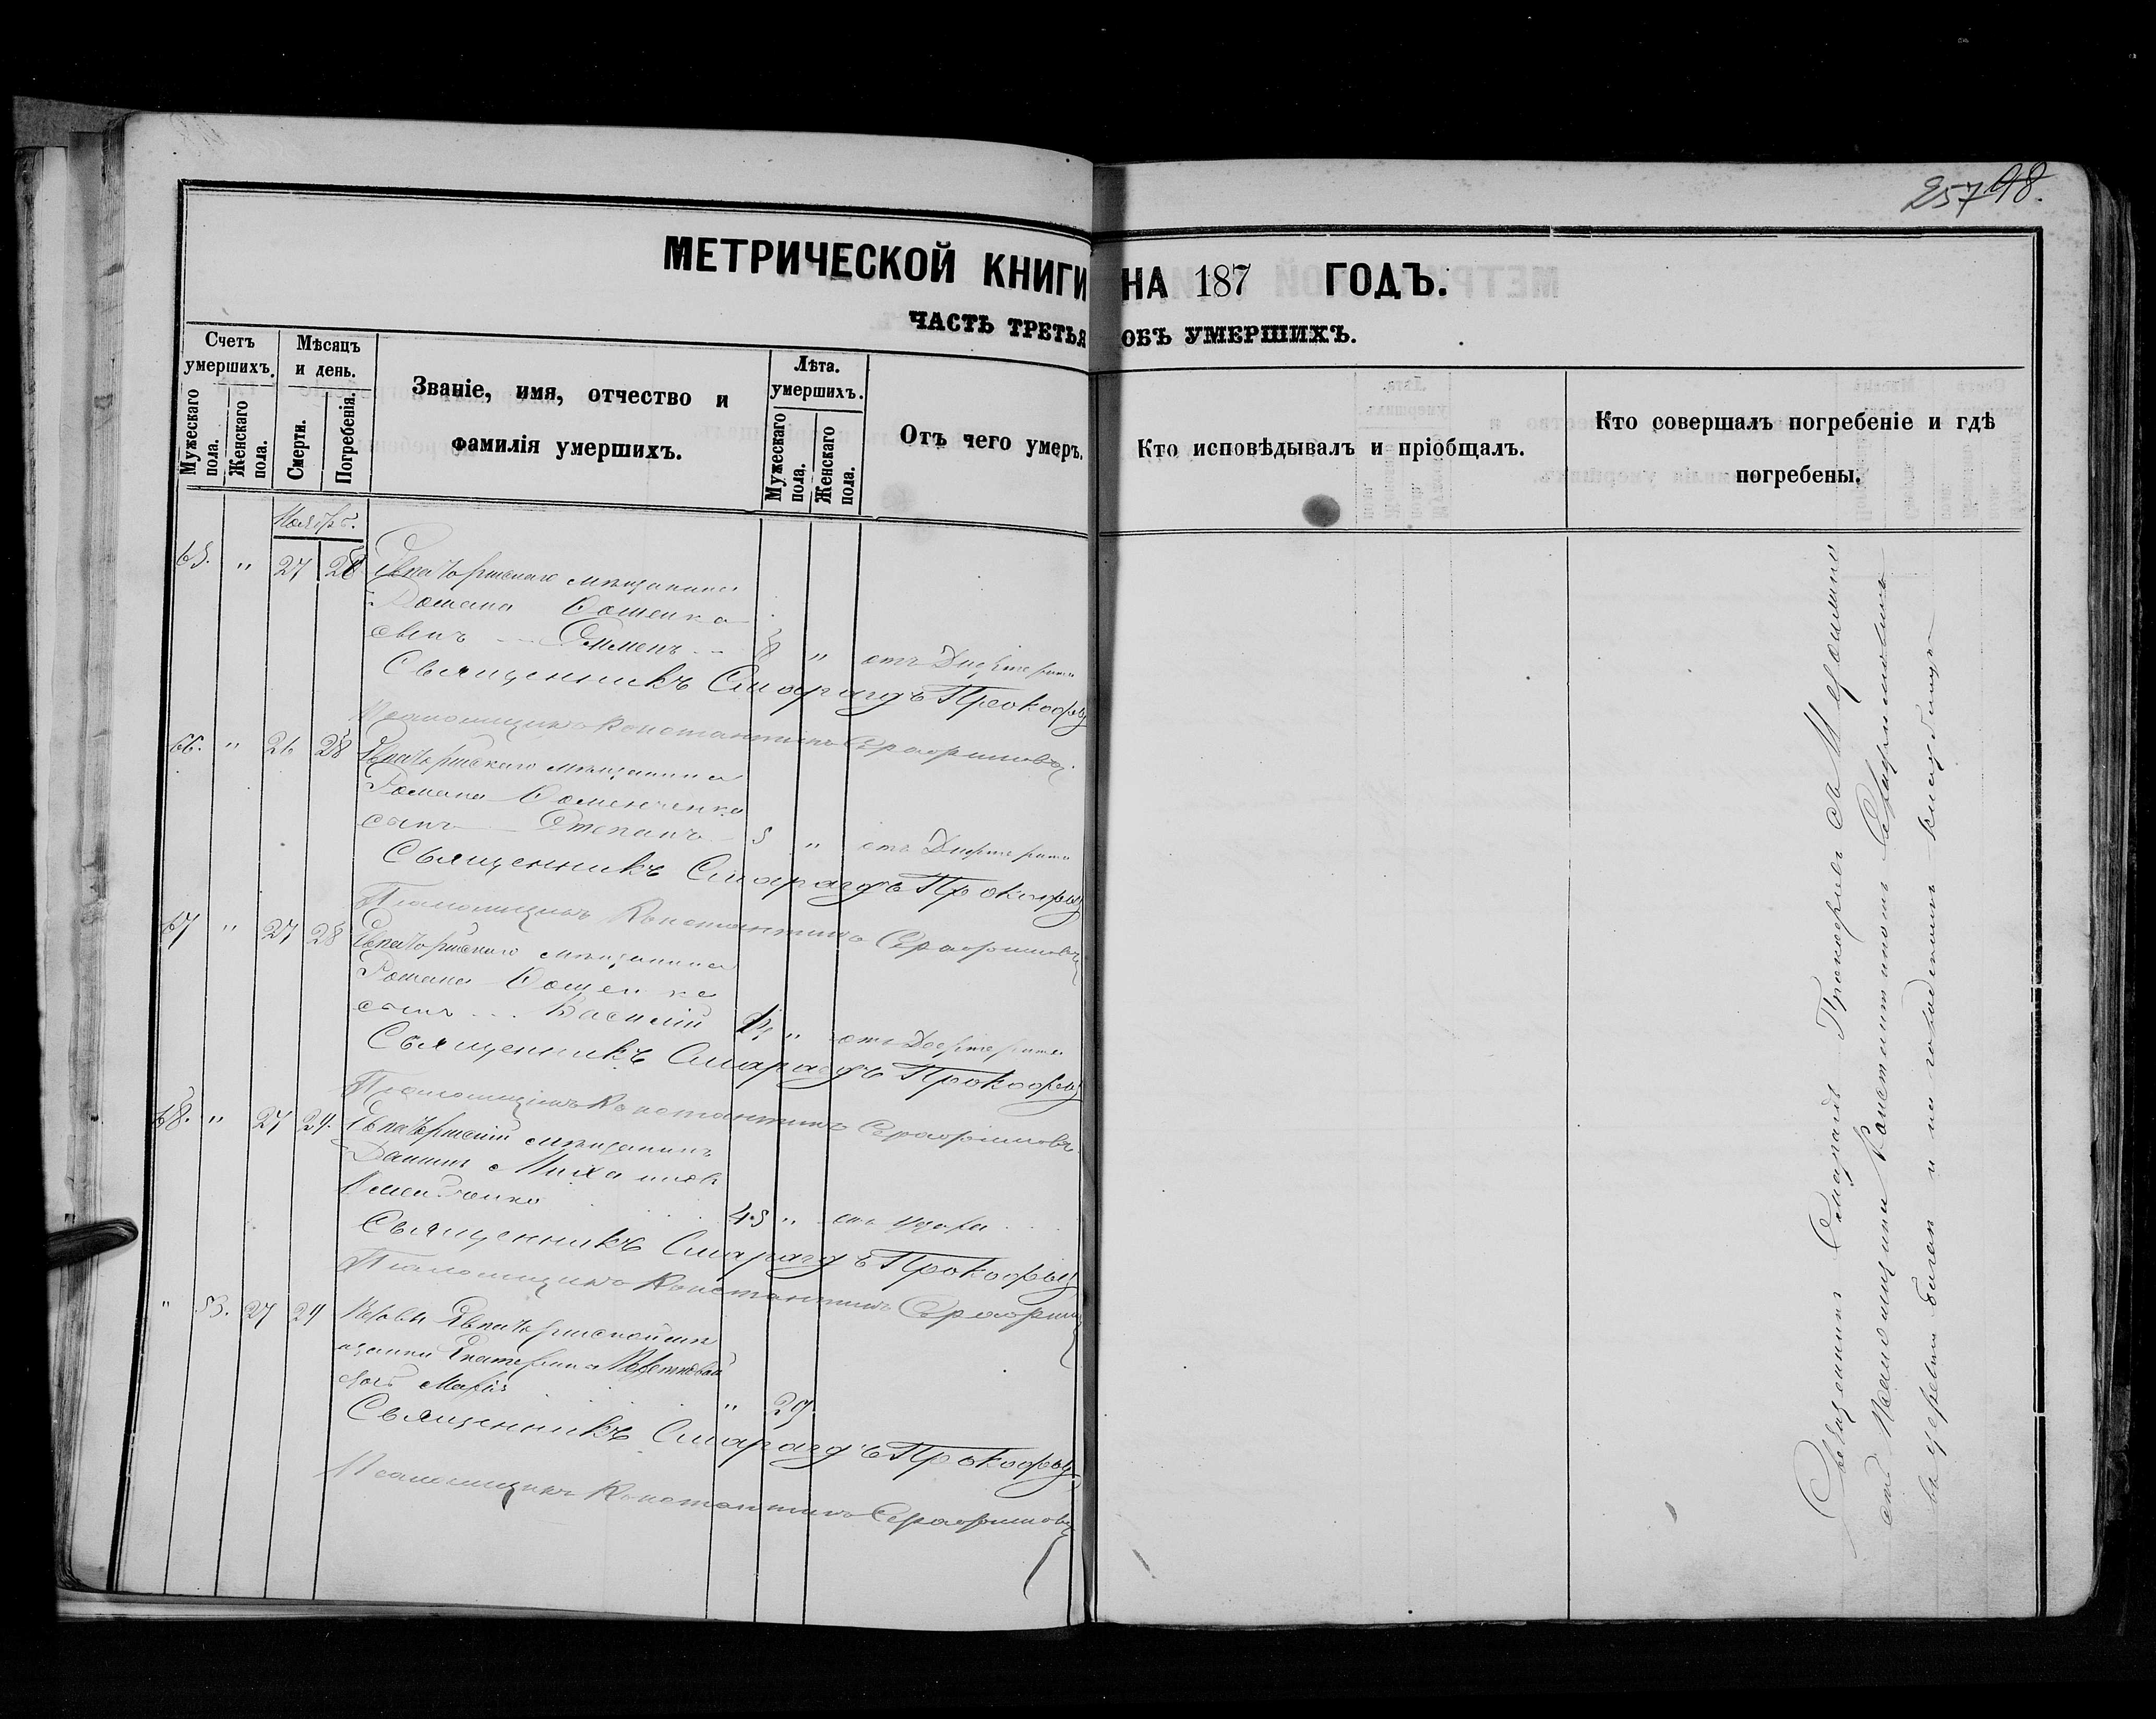 25798.
МЕТРИЧЕСКОЙ КНИГИ НА 187 ГОДЪ.
ЧАСТЬ ТРЕТЬЯ ОБЪ УМЕРШИХЪ.
Счетъ умершихъ.
Мужескаго пола.
Женскаго пола.
Мѣсяцъ и день.
Смерти.
Погребенія.
Званіе, имя, отчество и
фамилія умершихъ.
Лѣта. умершихъ.
Мужескаго пола.
Женскаго пола.
Отъ чего умеръ.
Кто исповѣдывалъ и пріобщалъ.
Кто совершалъ погребеніе и гдѣ
погребены.
Ноябрь.
65. " 27 28 Евпаторійскаго мѣщанина
Романа
сынъ 8 " отъ Дифтерита
Священникъ Смарагдъ Прокофьев
Псаломщикъ Константинъ Серафимовъ
66. " 26 28 Евпаторійскаго мѣщанина
Романа
сынъ Степанъ 5 " отъ Дифтерита
Священникъ Смарагдъ Прокофьев
Псаломщикъ Константинъ Серафимовъ
67 " 27 28 Евпаторійскаго мѣщанина
Романа
сынъ Василій " отъ Дифтерита
Священникъ Смарагдъ Прокофьев
Псаломщикъ Константинъ Серафимовъ
68. " 27 29. Евпаторійскій мѣщанинъ
Даніилъ Михаиловъ
45 " отъ удара
Священникъ Смарагдъ Прокофьев
Псаломщикъ Константинъ Серафимов
" 53. 27 29 Евпаторійской мѣ
щанки Екатерины
дочь Марія " 29
Священникъ Смарагдъ Прокофьев
Псаломщикъ Константинъ Серафимовъ
Священникъ Смарагдъ Прокофьевъ съ
Псаломщикомъ Константиномъ Серафимовымъ
въ церкви и на городскомъ кладбищѣ